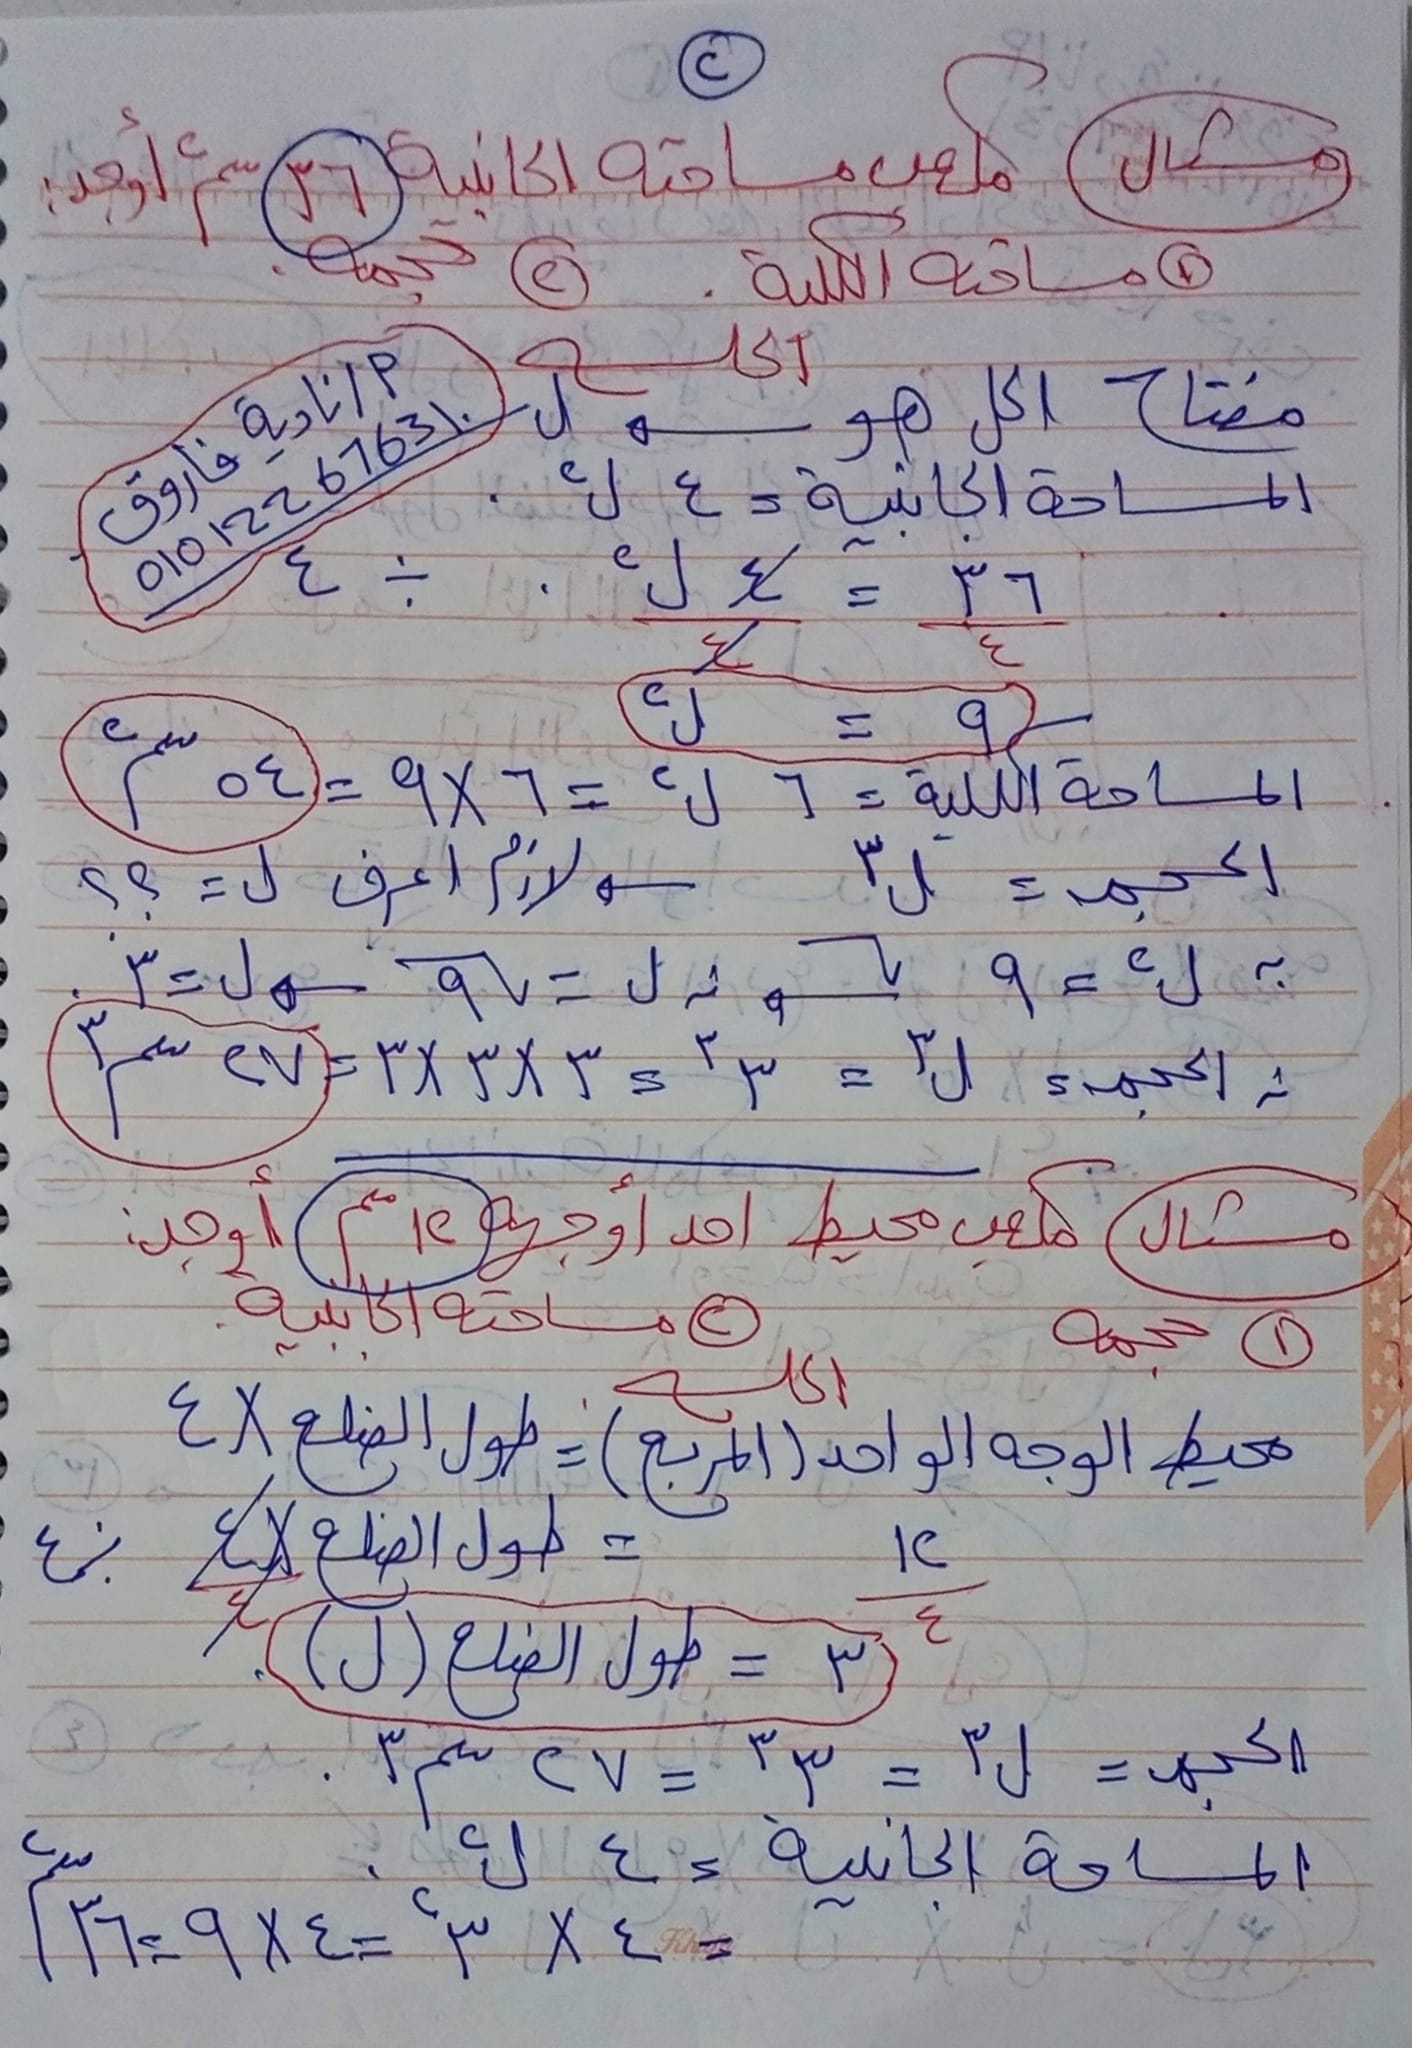 ٢
مثال مكعب مساحته الجانبية ٣٦ سم٢ أوجد:
١ مساحته الكلية . ٢ حجمه .
الحل
مفتاح الحل هو ← ل
م / نادية فاروق
01012267631
المساحة الجانبية = ٤ ل٢ .
٣٦/٤ = ٤ ل٢/٤ . ÷ ٤
٩ = ل٢
المساحة الكلية = ٦ ل٢ = ٦ × ٩ = ٥٤ سم٢
الحجم = ل٣ ← لازم اعرف ل = ؟؟
∵ ل٢ = ٩ √ ← ∴ ل = √٩ ← ل = ٣ .
∴ الحجم = ل٣ = ٣٣ = ٣ × ٣ × ٣ = ٢٧ سم٣
مثال مكعب محيط احد أوجهه ١٢ سم أوجد:
١ حجمه ٢ مساحته الجانبية .
الحل
محيط الوجه الواحد (المربع) = طول الضلع × ٤
١٢/٤ = طول الضلع × ٤/٤ ÷ ٤
٣ = طول الضلع (ل) .
الحجم = ل٣ = ٣٣ = ٢٧ سم٣ .
المساحة الجانبية = ٤ ل٢ .
= ٤ × ٣٢ = ٤ × ٩ = ٣٦ سم٢